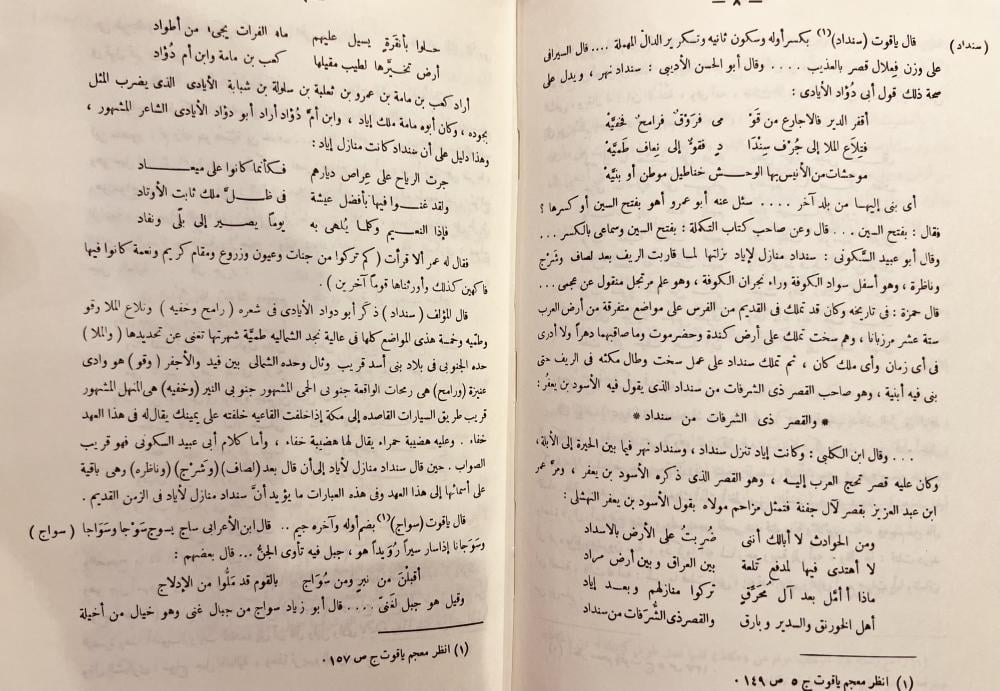 — ٨ —
( سنداد )
قال ياقوت (سنداد)(١) بكسر أوله وسكون ثانيه وتكرير الدال المهملة .... قال السيرافى
على وزن فِعلال قصر بالعذيب .... وقال أبو الحسن الأديبى : سنداد نهر ، ويدل على
صحة ذلك قول أبى دُؤاد الأيادى :
أقفر الدير فالاجارع من قَوْ مى فرَوْقٌ فرامحٌ فخفيَّهْ
فتِلاع الملا إلى جُرْف سِنْدَا دٍ فقوٌّ إلى نِعاف طَميَّهْ
موحشات من الأنيس بها الوحـش خناطيل موطن أو بنيَّهْ
أى بنى إليهـا من بلد آخر .... سئل عنه أبو عمرو أهو بفتح السين أو كسرها ؟
فقال : بفتح السين ... قال وعن صاحب كتاب التكملة : بفتح السين وسماعى بالكسر ...
وقال أبو عبيد السَّكونى : سنداد منازل لإياد نزلتها لمـا قاربت الريف بعد لصاف وشَرْج
وناظرة ، وهو أسفل سواد الكوفة وراء نجران الكوفة ، وهو علم مرتجل منقول عن عجمى...
قال حمزة : فى تاريخه وكان قد تملك فى القديم من الفرس على مواضع متفرقة من أرض العرب
ستة عشر مرزبانا ، وهم سخت تملك على أرض كندة وحضرموت وماصاقبهما دهراً ولا أدرى
فى أى زمان وأى ملك كان ، ثم تملك سنداد على عمل سخت وطال مكثه فى الريف حتى
بنى فيه أبنية ، وهو صاحب القصر ذى الشرفات من سنداد الذى يقول فيه الأسود بن يعفُر :
* والقصر ذى الشرفات من سنداد *
... وقال ابن الكلبى : وكانت إياد تنزل سنداد ، وسنداد نهر فيما بين الحيرة إلى الأبلة،
وكان عليه قصر تحج العرب إليـه ، وهو القصر الذى ذكره الأسود بن يعفر ، ومرَّ عمر
ابن عبد العزيز بقصر لآل جفنة فتمثل مزاحم مولاه بقول الأسود بن يعفر النهشلى :
ومن الحوادث لا أبالك أننى ضُرِبتُ على الأرض بالاسداد
لا أهتدى فيها لمدفع تَلعة بين العراق وبين أرض مراد
ماذا أأمّل بعد آل مُحَرّقٍ تركوا منازلهم وبعـد إياد
أهل الخورنق والسدير وبارق والقصر ذى الشُّرفات من سنداد
(١) انظر معجم ياقوت ج ٥ ص ١٤٩ ٠
حـلوا بأنقَرةٍ يسيل عليهم ماء الفرات يجىء من أطواد
أرض تخيَّرها لطيب مقيلها كعب بن مامة وابن أم دُؤاد
أراد كعب بن مامة بن عمرو بن ثعلبة بن سلولة بن شبابة الأيادى الذى يضرب المثل
بجوده ، وكان أبوه مامة ملك إياد ، وابن أمّ دُؤاد أراد أبو دؤاد الأيادى الشاعر المشهور ،
وهذا دليل على أن سنداد كانت منازل إياد :
جرت الرياح على عِراص ديارهم فكأنما كانوا على ميعـــاد
ولقد غنــوا فيها بأفضل عيشة فى ظــلّ ملك ثابت الأوتاد
فإذا النعــيم وكلما يُلهى به يوماً يصــير إلى بلًى ونفاد
فقال له عمر ألا قرأت ( كم تركوا من جنات وعيون وزروع ومقام كريم ونعمة كانوا فيها
فاكهين كذلك وأورثناها قوماً آخرين ) .
قال المؤلف ( سنداد ) ذكر أبو دواد الأيادى فى شعره ( رامح وخفيه ) وتلاع الملا وقو
وطميّه وخمسة هذى المواضع كلها فى عالية نجد الشماليه طميَّة شهرتها تغنى عن تحديدها (والملا)
حده الجنوبى فى بلاد بنى أسد قريب وثال وحده الشمالى بين فيد والأجفر (وقو) هو وادى
عنيزة (ورامح) هى رمحات الواقعة جنوبى الحمى المشهور جنوبى النير (وخفيه) هى المنهل المشهور
قريب طريق السيارات القاصده إلى مكة إذا خلفت القاعيه خلفته على يمينك يقال له فى هذا العهد
خفاء . وعليه هضيبة حمراء يقال لها هضيبة خفاء ، وأما كلام أبى عبيد السكونى فهو قريب
الصواب . حين قال سنداد منازل لأياد إلى أن قال بعد (لصاف) (وشرج) (وناظره) وهى باقية
على أسمائها إلى هذا العهد وفى هذه العبارات ما يؤيد أنَّ سنداد منازل لأياد فى الزمن القديم .
( سواج )
قال ياقوت (سواج)(١) بضم أوله وآخره جيم .. قال ابن الأعرابى ساج يسوج سَوْجا وسَوَاجا
وسَوَجانا إذا سار سيراً رُوَيداً هو ، جبل فيه تأوى الجنُّ ... قال بعضهم :
أقبلْنَ من نيرٍ ومن سُوَاج بالقوم قد مَلُّوا من الإدلاج
وقيل هو جبل لغَنىّ ....قال أبو زياد سواج من جبال غنى وهو خيال من أخيلة
(١) انظر معجم ياقوت ج ص ١٥٧ ٠